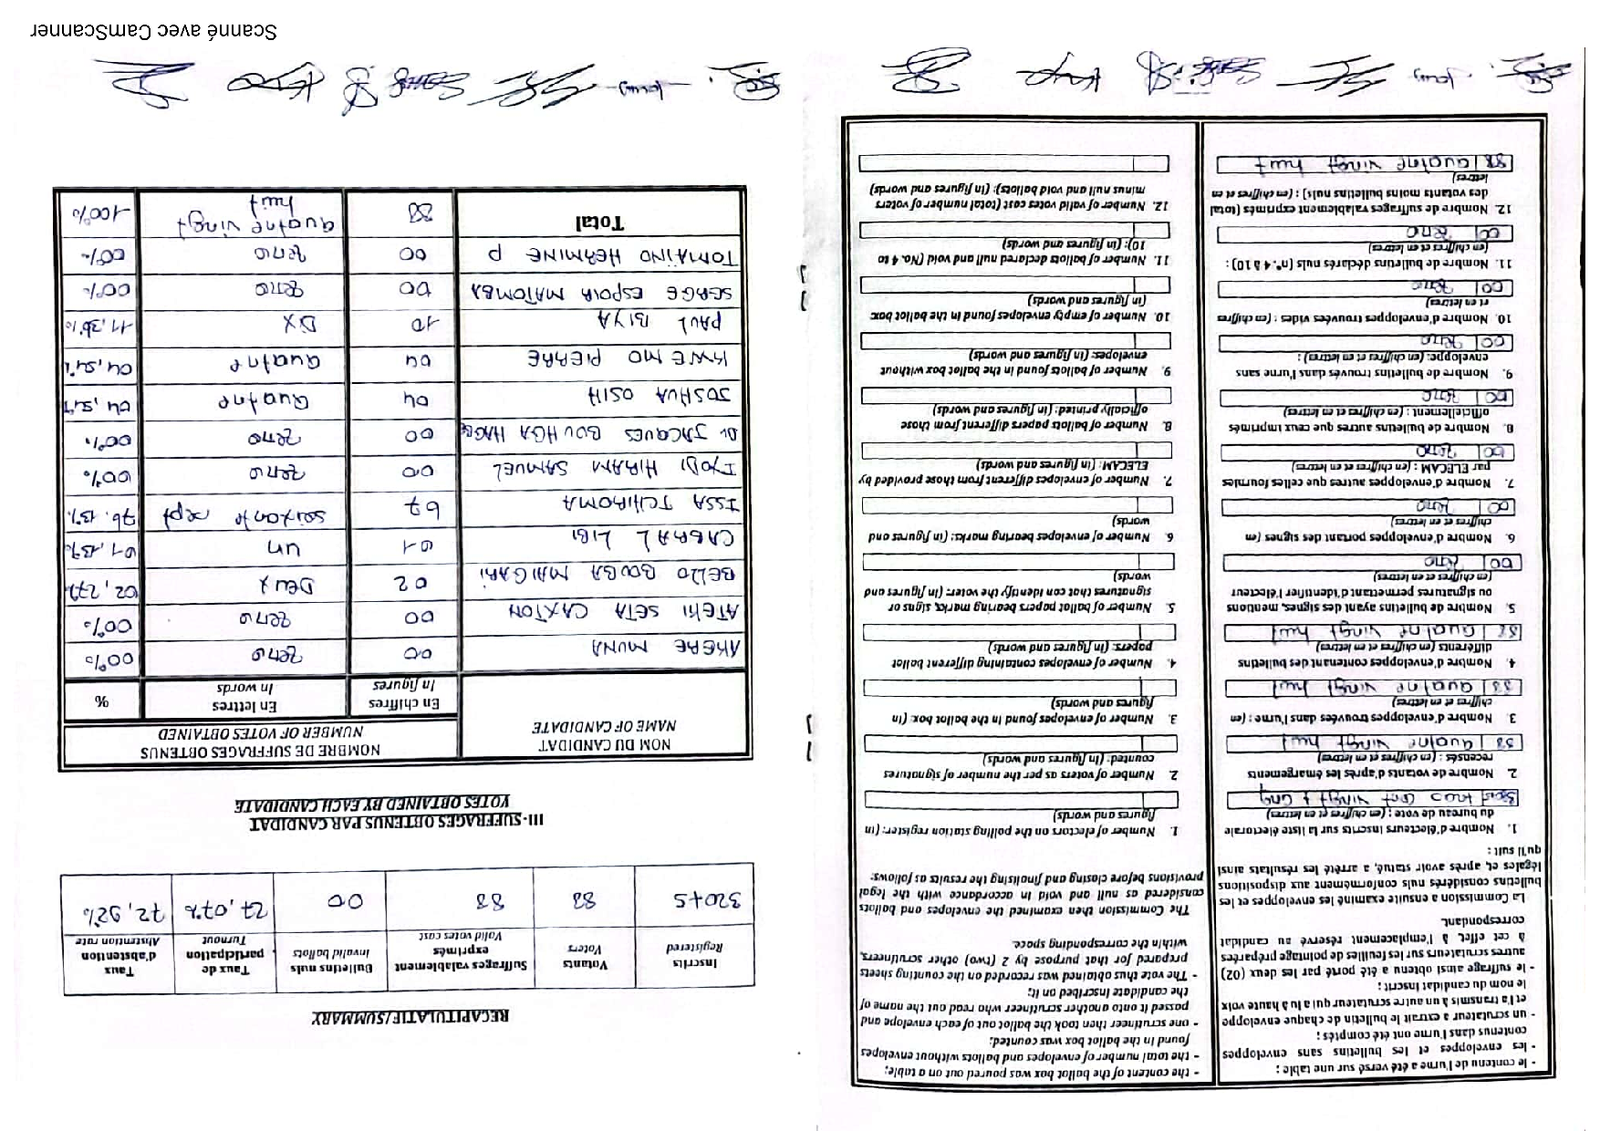 - le contenu de l'urne a été versé sur une table ;
- les enveloppes et les bulletins sans enveloppes
contenus dans l'urne ont été comptés ;
- un scrutateur a extrait le bulletin de chaque enveloppe
et l'a transmis à un autre scrutateur qui a lu à haute voix
le nom du candidat inscrit ;
- le suffrage ainsi obtenu a été porté par les deux (02)
autres scrutateurs sur les feuilles de pointage préparées
à cet effet, à l'emplacement réservé au candidat
correspondant.
La Commission a ensuite examiné les enveloppes et les
bulletins considérés nuls conformément aux dispositions
légales et, après avoir statué, a arrêté les résultats ainsi
qu'il suit :
1. Nombre d'électeurs inscrits sur la liste électorale
du bureau de vote : (en chiffres et en lettres)
trois cent vingt cinq
2. Nombre de votants d'après les émargements
recensés : (en chiffres et en lettres)
88 quatre vingt huit
3. Nombre d'enveloppes trouvées dans l'urne : (en
chiffres et en lettres)
88 quatre vingt huit
4. Nombre d'enveloppes contenant des bulletins
différents (en chiffres et en lettres)
88 quatre vingt huit
5. Nombre de bulletins ayant des signes, mentions
ou signatures permettant d'identifier l'électeur
(en chiffres et en lettres)
00 zero
6. Nombre d'enveloppes portant des signes (en
chiffres et en lettres)
00 zero
7. Nombre d'enveloppes autres que celles fournies
par ELECAM : (en chiffres et en lettres)
00 zero
8. Nombre de bulletins autres que ceux imprimés
officiellement : (en chiffres et en lettres)
00 zero
9. Nombre de bulletins trouvés dans l'urne sans
enveloppe: (en chiffres et en lettres) :
00 zero
10. Nombre d'enveloppes trouvées vides : (en chiffres
et en lettres)
00 zero
11. Nombre de bulletins déclarés nuls (n°. 4 à 10) :
(en chiffres et en lettres)
00 zero
12. Nombre de suffrages valablement exprimés (total
des votants moins bulletins nuls) : (en chiffres et en
lettres)
88 quatre vingt huit
- the content of the ballot box was poured out on a table;
- the total number of envelopes and ballots without envelopes
found in the ballot box was counted;
- one scrutineer then took the ballot out of each envelope and
passed it onto another scrutineer who read out the name of
the candidate inscribed on it;
- The vote thus obtained was recorded on the counting sheets
prepared for that purpose by 2 (two) other scrutineers,
within the corresponding space.
The Commission then examined the envelopes and ballots
considered as null and void in accordance with the legal
provisions before closing and finalising the results as follows:
1. Number of electors on the polling station register: (in
figures and words)
2. Number of voters as per the number of signatures
counted: (in figures and words)
3. Number of envelopes found in the ballot box: (in
figures and words)
4. Number of envelopes containing different ballot
papers: (in figures and words)
5. Number of ballot papers bearing marks, signs or
signatures that can identify the voter: (in figures and
words)
6. Number of envelopes bearing marks: (in figures and
words)
7. Number of envelopes different from those provided by
ELECAM: (in figures and words)
8. Number of ballots papers different from those
officially printed: (in figures and words)
9. Number of ballots found in the ballot box without
envelopes: (in figures and words)
10. Number of empty envelopes found in the ballot box:
(in figures and words)
11. Number of ballots declared null and void (No. 4 to
10): (in figures and words)
12. Number of valid votes cast (total number of voters
minus null and void ballots): (in figures and words)
RECAPITULATIF/SUMMARY
Inscrits Registered | Votants Voters | Suffrages valablement exprimés Valid votes cast | Bulletins nuls Invalid ballots | Taux de participation Turnout | Taux d'abstention Abstention rate
88 88 00 27,07% 72,92%
III- SUFFRAGES OBTENUS PAR CANDIDAT
VOTES OBTAINED BY EACH CANDIDATE
NOM DU CANDIDAT NAME OF CANDIDATE | NOMBRE DE SUFFRAGES OBTENUS NUMBER OF VOTES OBTAINED
En chiffres In figures | En lettres In words | %
AKERE MUNA 00 zero 00%
ATEKI SETA CAXTON 00 zero 00%
BELLO BOUBA MAIGARI 02 Deux 02,27%
CABRAL LIBI 01 un 01,13%
ISSA TCHIROMA 67 soixante sept 76.13%
IYODI HIRAM SAMUEL 00 zero 00%
Dr JACQUES BOUHGA HAGBE 00 zero 00%
JOSHUA OSIH 04 Quatre 04,54%
KWEMO PIERRE 04 Quatre 04,54%
PAUL BIYA 10 Dix 11,36%
SERGE ESPOIR MATOMBA 00 zero 00%
TOMAÏNO HERMINE P 00 zero 00%
Total 88 quatre vingt huit 100%
Scanné avec CamScanner